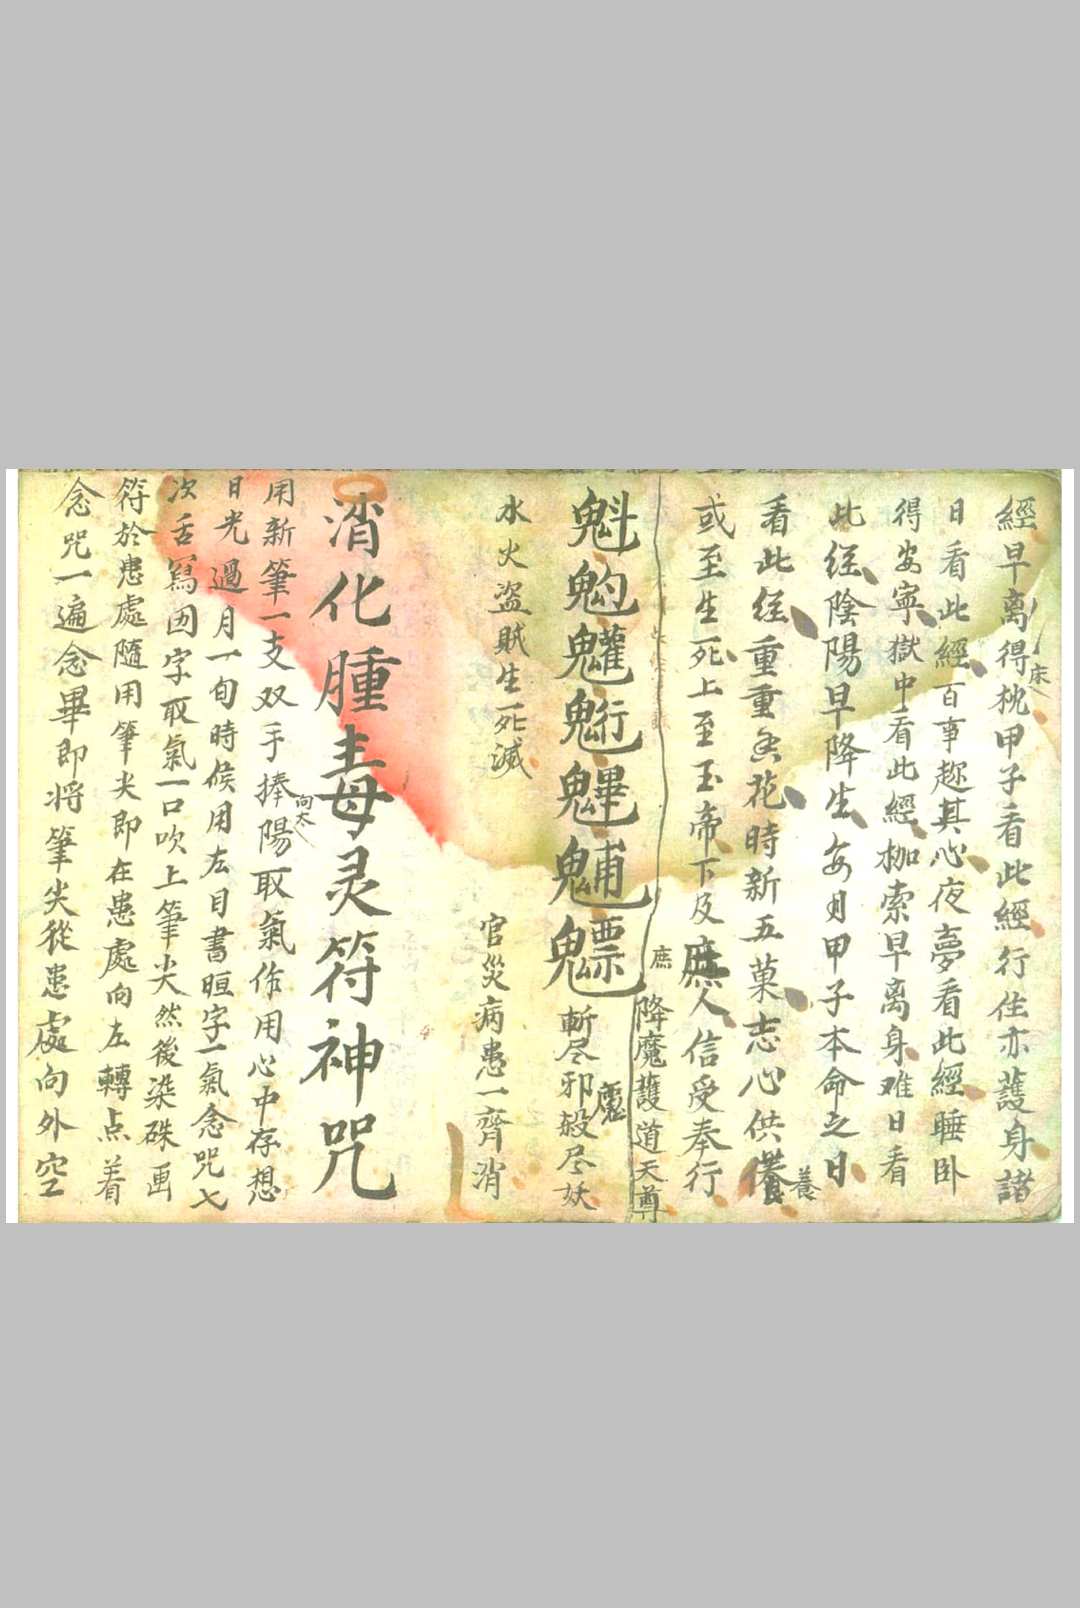 經早離得枕甲子看此經行住亦護身諸
床
日看此經百事趂其心夜夢看此經睡卧
得安寧獄中看此經枷索早离身难日看
此経陰陽早降生每月甲子本命之日
看此経重重香花時新五菓志心供養
養
或至生死上至玉帝下及庶人信受奉行
庶
降魔護道天尊
魁𩲃魓 斬尽邪殺尽妖
魔
水火盗賊生死滅 官災病患一齊消
消化腫毒灵符神咒
用新筆一支双手捧陽取氣作用心中存想
向太
日光過月一旬時候用左目書晅字一氣念咒七
次舌寫囡字取氣一口吹上筆尖然後染硃画
符於患處隨用筆尖即在患處向左轉点着
念咒一遍念畢即将筆尖従患處向外空